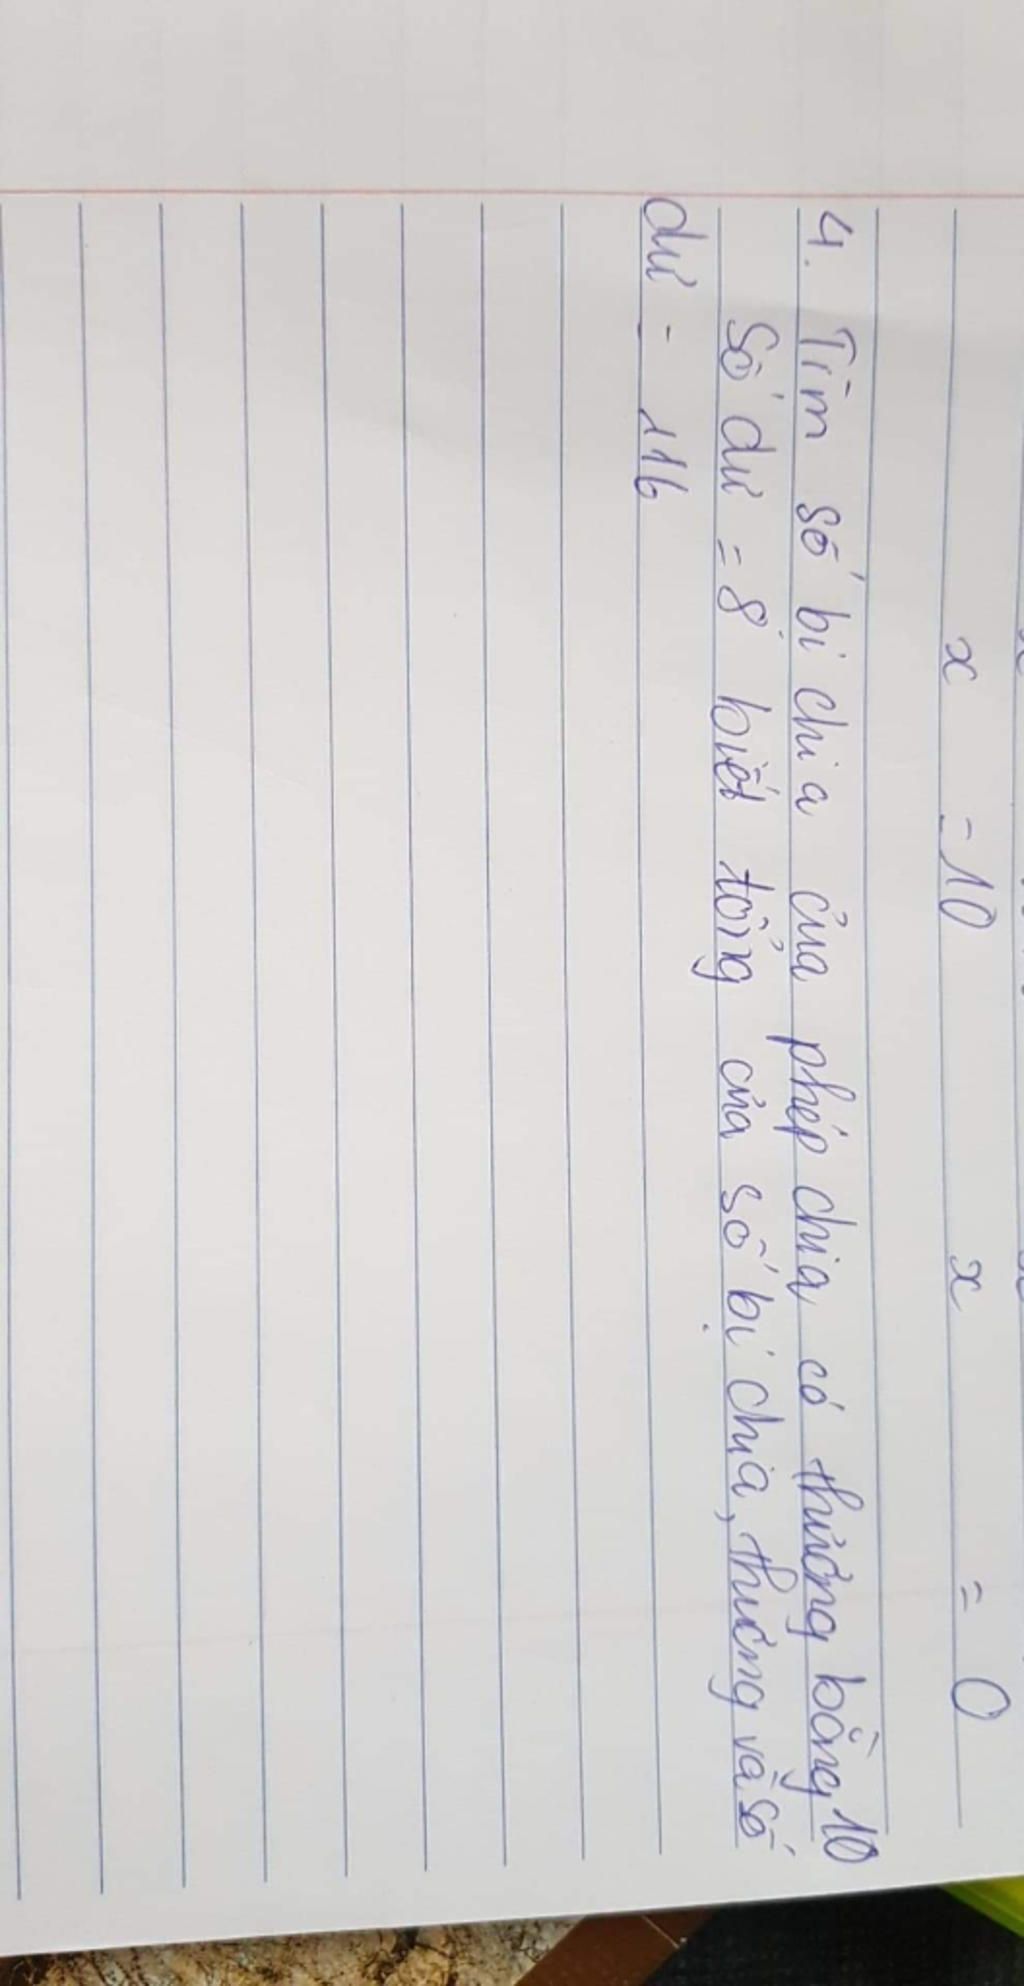 x = 10 x = 0
4. Tìm số bị chia của phép chia có thương bằng 10
Số dư = 8 biết tổng của số bị chia, thương và số
dư = 116